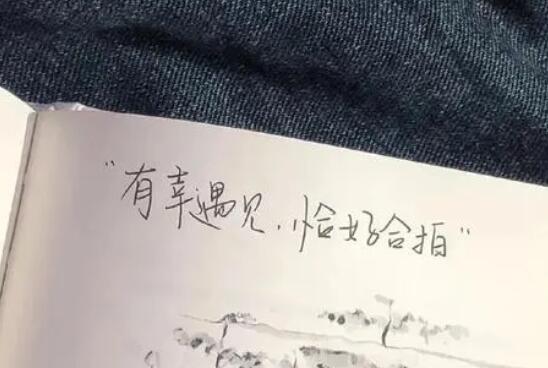 “有幸遇见，恰好合拍”